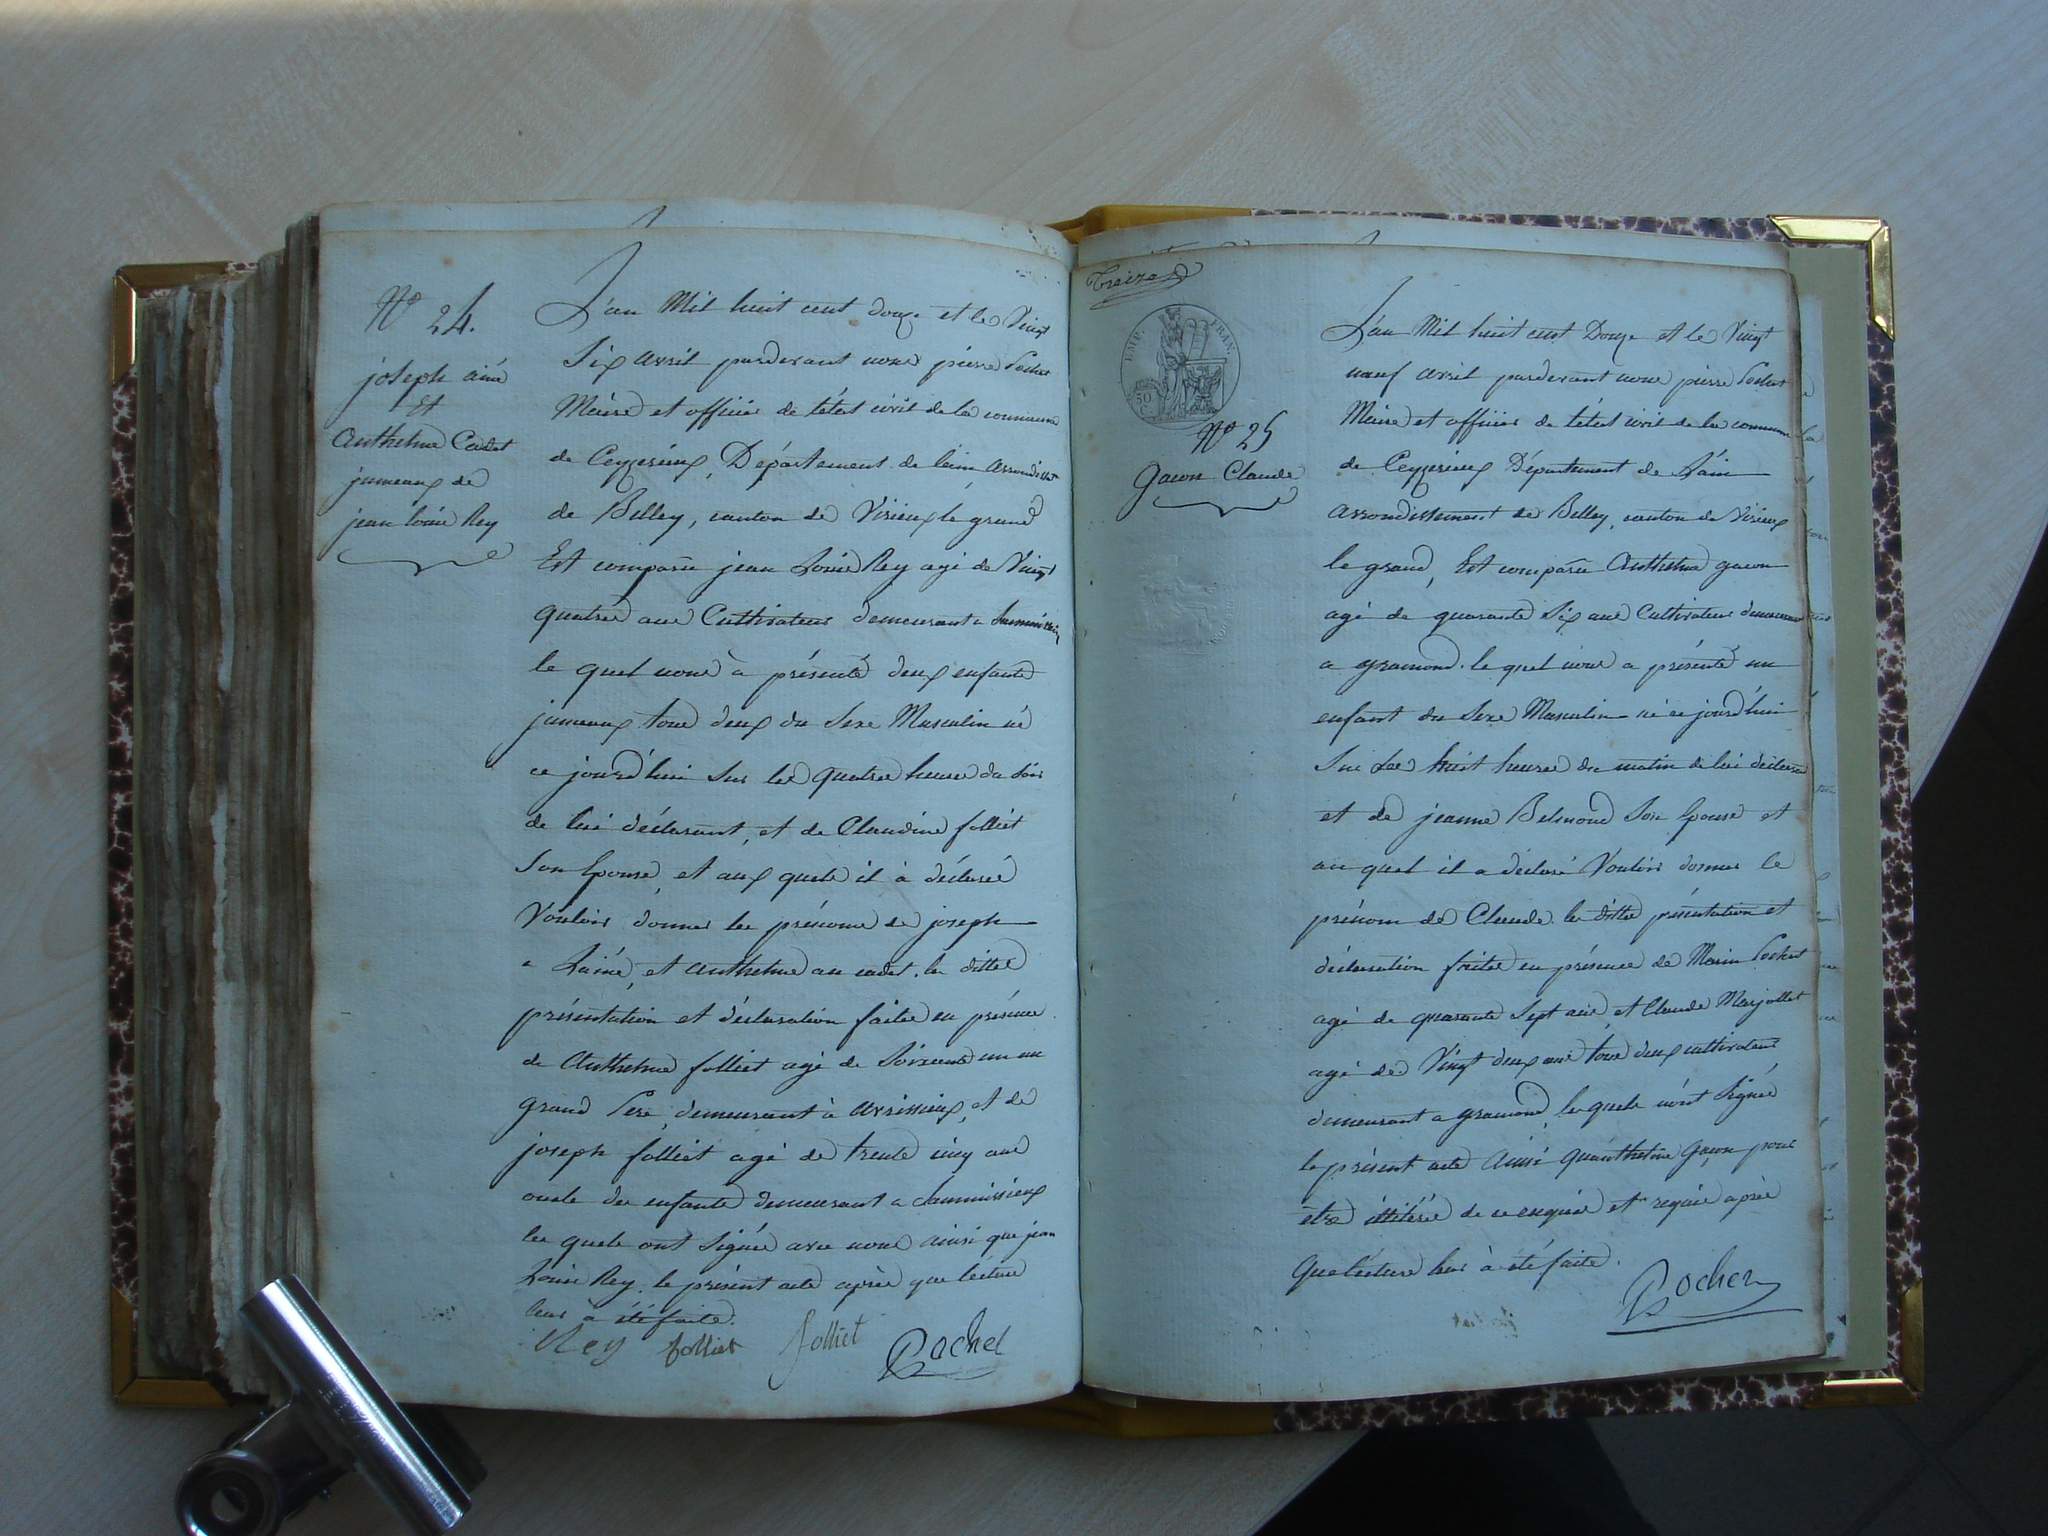 N° 24.
joseph ainé
Et
Anthelme Cadet
jumeaux de
jean Louis Rey
L'an Mil huit cent douze et le Vingt
Six avril pardevant nous pierre Pochet
Maire et officier de l'état civil de la commune
de Ceyzerieux, Département de l'ain arrondissmt
de Belley, canton de Virieux le grand
Est comparu jean Louis Rey agé de Vingt
quatre ans Cultivateur demeurant a
le quel nous à présenté deux enfants
jumeaux tous deux du Sexe Masculin né
ce jourd'hui sur les quatre heures du soir
de lui déclarant, et de Claudine folliet
Son Epouse, et aux quels il à déclaré
Vouloir donner les prénoms de joseph
a L'ainé, et anthelme au cadet. les dittes
présentation et déclaration faites en présence
de Anthelme folliet agé de Soixante un an
grand Pere, demeurant à avrissieux, et de
joseph folliet agé de trente cinq ans
oncle des enfants demeurant a
les quels ont Signés avec nous ainsi que jean
Louis Rey. le présent acte après que lecture
leur à été faite.
Rey folliet folliet Pochet
Treize
EMP. FRAN.
50
C.
N° 25
Gacon Claude
L'an Mil huit cent Douze et le Vingt
neuf avril pardevant nous pierre Pochet
Maire et officier de l'état civil de la commune
de Ceyzerieux Département de L'ain
arrondissement de Belley, canton de Virieux
le grand, Est comparu Anthelme gacon
agé de quarante Six ans Cultivateur demeurant
a gramond. le quel nous a présenté un
enfant du Sexe Masculin né ce jourd'hui
Sur Les huit heures du matin de lui déclarant
et de jeanne Belmond Son Epouse et
au quel il a déclaré Vouloir donner le
prénom de Claude. les dittes présentation et
déclaration faites en présence de Marin Pochet
agé de quarante Sept ans, et Claude Marjollet
agé de Vingt deux ans tous deux cultivateurs
demeurant a gramond, les quels n'ont Signés
le présent acte ainsi qu'anthelme gacon pour
être illitérés de ce enquis et requis après
que lecture leur à été faite.
Pochet